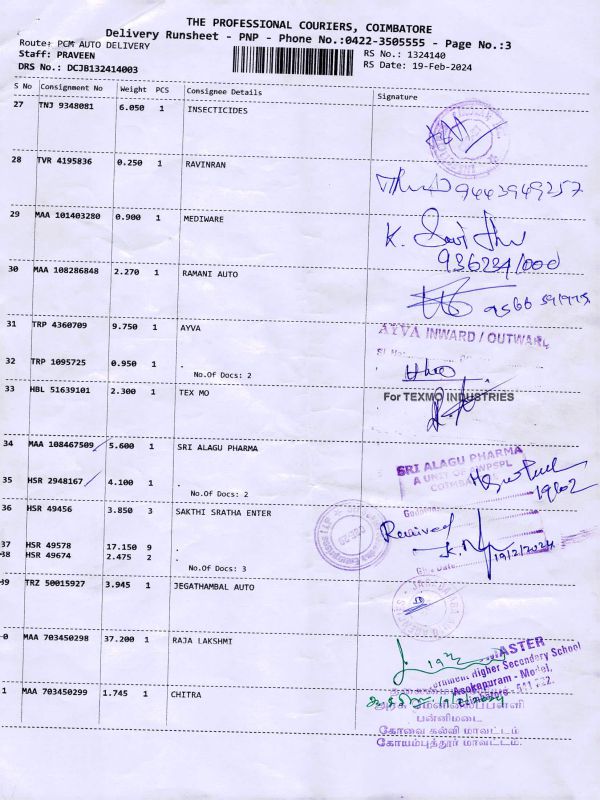 THE PROFESSIONAL COURIERS, COIMBATORE
Delivery Runsheet - PNP - Phone No.:0422-3505555 - Page No.:3
Route: PCM AUTO DELIVERY
RS No.: 1324140
Staff: PRAVEEN
RS Date: 19-Feb-2024
DRS No.: DCJB132414003
S No Consignment No Weight PCS Consignee Details Signature
27 TNJ 9348081 6.050 1 INSECTICIDES
28 TVR 4195836 0.250 1 RAVINRAN
9443949257
29 MAA 101403280 0.900 1 MEDIWARE
K.
30 MAA 108286848 2.270 1 RAMANI AUTO
31 TRP 4360709 9.750 1 AYVA
AYVA INWARD / OUTWARD
32 TRP 1095725 0.950 1 .
No.Of Docs: 2
33 HBL 51639101 2.300 1 TEX MO
For TEXMO INDUSTRIES
34 MAA 108467509 5.600 1 SRI ALAGU PHARMA
SRI ALAGU PHARMA
A UNIT OF
35 HSR 2948167 4.100 1 .
No.Of Docs: 2
36 HSR 49456 3.850 3 SAKTHI SRATHA ENTER
Received
K.
19/2/2024
37 HSR 49578 17.150 9 .
38 HSR 49674 2.475 2 .
No.Of Docs: 3
39 TRZ 50015927 3.945 1 JEGATHAMBAL AUTO
0 MAA 703450298 37.200 1 RAJA LAKSHMI
MASTER
Higher Secondary School
Asokapuram - Model,
1 MAA 703450299 1.745 1 CHITRA
பன்னிமடை
கோவை கல்வி மாவட்டம்
கோயம்புத்தூர் மாவட்டம்.